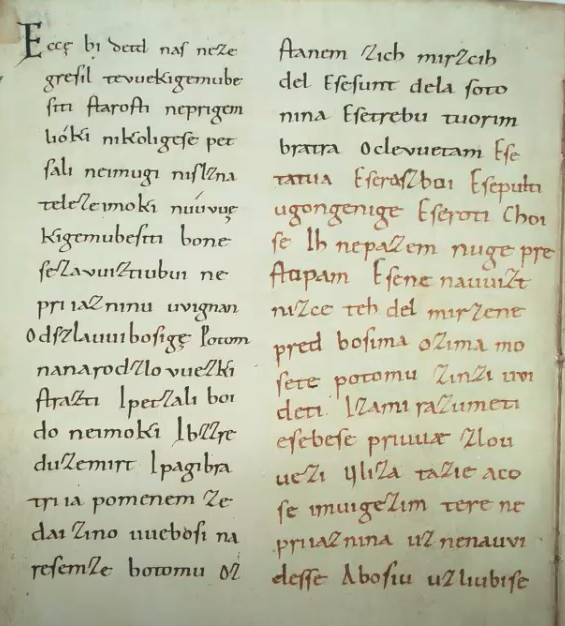 Eccę bi detd naſ neZe
greſil tevuekigemube
ſiti ſtaroſti neprigem
lióki nikoligeſe pet
ſali neimugi niſlZna
teleZeimoki núuvuę
kigemubeſiti bone
ſeZavuiZtiubui ne
priiaZninu uvignan
OdſZlauuibosigę Potom
nanarodZlovueZki
ſtraZti IpetZali boi
do neimoki IbZZre
duZemirt Ipagibra
triia pomenem Ze
dai Zino vuebosi na
resemZe botomu oZ
ſtanem Zich mirZcih
del Eſeſunt dela ſoto
nina Eſetrebu tuorim
bratra Oclevuetam Eſe
tatua EſeraZboi Eſepulti
ugongenige Eſeroti Choi
ſe Ih nepaZem nuge pre
ſtopam Eſene nauuiZt
niZce teh del mirZene
pred bosima oZima mo
ſete potomu ZinZi uvi
deti IZami raZumeti
eſebeſe priuuæ Zlou
ueZi uliZa taZie aco
ſe imuigeZim tere ne
priiaZnina uZ nenauvi
deſſe Abosiu uZliubiſe